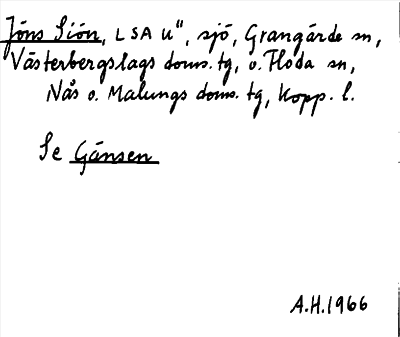 Jöns Siön, LSA U", sjö, Grangärde sn,
Västerbergslags doms. tg, o. Floda sn,
Nås o. Malungs doms. tg, Kopp. l.
Se Gänsen
A.H. 1966